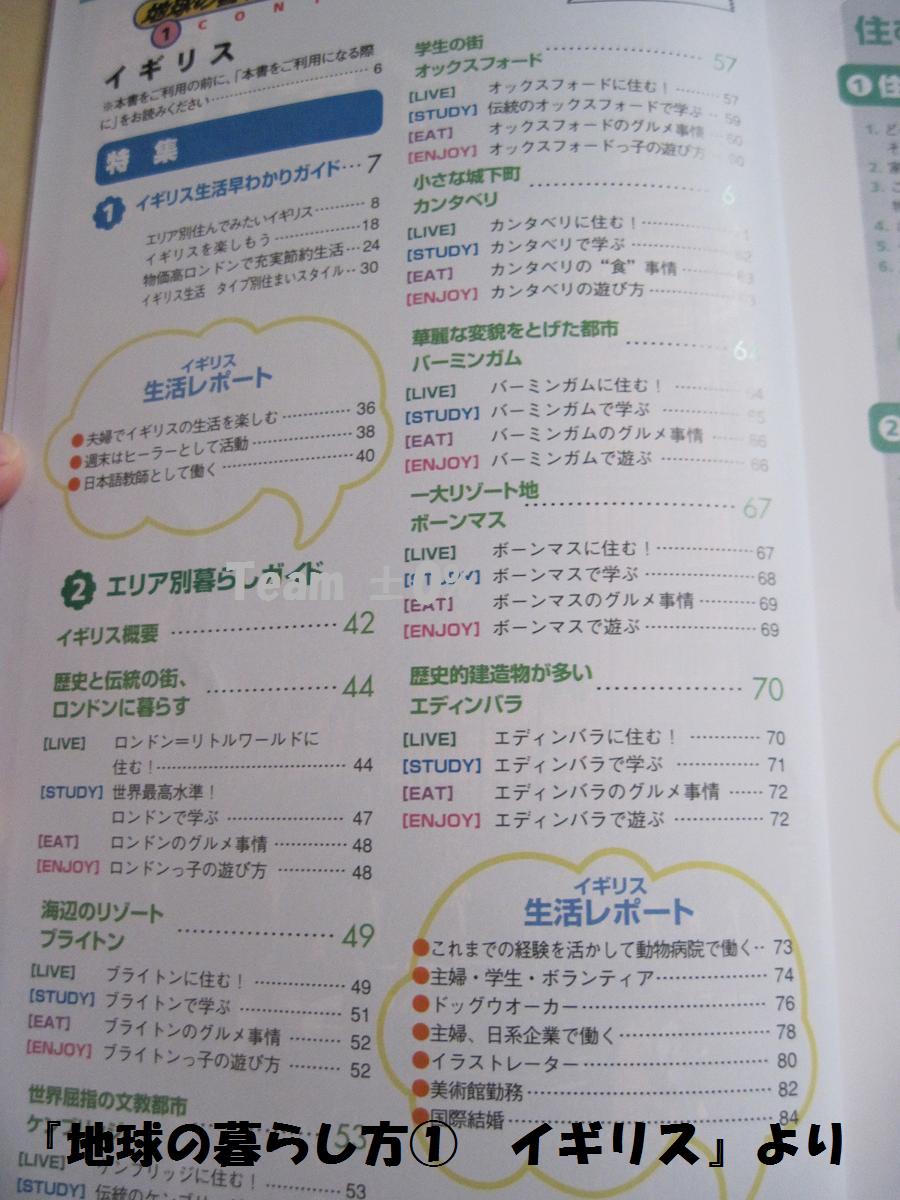 ① CON
イギリス
※本書をご利用の前に、「本書をご利用になる際
に」をお読みください……6
特集
1 イギリス生活早わかりガイド…7
エリア別住んでみたいイギリス……8
イギリスを楽しもう……18
物価高ロンドンで充実節約生活…24
イギリス生活 タイプ別住まいスタイル…30
イギリス
生活レポート
●夫婦でイギリスの生活を楽しむ……36
●週末はヒーラーとして活動……38
●日本語教師として働く……40
2 エリア別暮らしガイド
イギリス概要……42
歴史と伝統の街、
ロンドンに暮らす……44
[LIVE] ロンドン＝リトルワールドに
住む！……44
[STUDY] 世界最高水準！
ロンドンで学ぶ……47
[EAT] ロンドンのグルメ事情……48
[ENJOY] ロンドンっ子の遊び方……48
海辺のリゾート
ブライトン……49
[LIVE] ブライトンに住む！……49
[STUDY] ブライトンで学ぶ……51
[EAT] ブライトンのグルメ事情……52
[ENJOY] ブライトンっ子の遊び方……52
世界屈指の文教都市
53
[LIVE] ケンブリッジに住む！……53
[STUDY]
学生の街
オックスフォード……57
[LIVE] オックスフォードに住む！……57
[STUDY] 伝統のオックスフォードで学ぶ…59
[EAT] オックスフォードのグルメ事情……60
[ENJOY] オックスフォードっ子の遊び方…60
小さな城下町
カンタベリ……6
[LIVE] カンタベリに住む！……
[STUDY] カンタベリで学ぶ……62
[EAT] カンタベリの“食”事情……63
[ENJOY] カンタベリの遊び方……63
華麗な変貌をとげた都市
バーミンガム……64
[LIVE] バーミンガムに住む！……64
[STUDY] バーミンガムで学ぶ……65
[EAT] バーミンガムのグルメ事情……66
[ENJOY] バーミンガムで遊ぶ……66
一大リゾート地
ボーンマス……67
[LIVE] ボーンマスに住む！……67
[STUDY] ボーンマスで学ぶ……68
[EAT] ボーンマスのグルメ事情……69
[ENJOY] ボーンマスで遊ぶ……69
歴史的建造物が多い
エディンバラ……70
[LIVE] エディンバラに住む！……70
[STUDY] エディンバラで学ぶ……71
[EAT] エディンバラのグルメ事情……72
[ENJOY] エディンバラで遊ぶ……72
イギリス
生活レポート
●これまでの経験を活かして動物病院で働く…73
●主婦・学生・ボランティア……74
●ドッグウオーカー……76
●主婦、日系企業で働く……78
●イラストレーター……80
●美術館勤務……82
●国際結婚……84
Team ±0%
『地球の暮らし方① イギリス』より